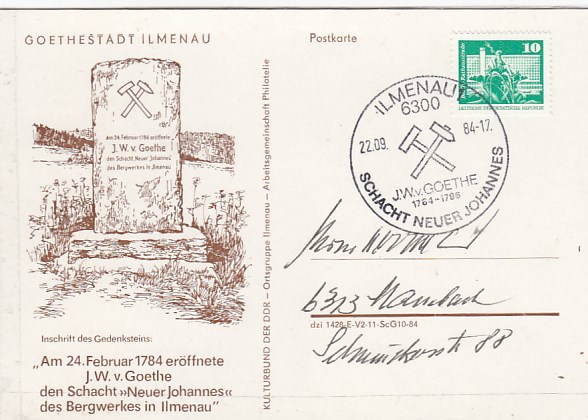 GOETHESTADT ILMENAU
Am 24. Februar 1784 eröffnete
J. W. v. Goethe
den Schacht „Neuer Johannes"
des Bergwerkes in Ilmenau
Inschrift des Gedenksteins:
„Am 24. Februar 1784 eröffnete
J. W. v. Goethe
den Schacht »Neuer Johannes«
des Bergwerkes in Ilmenau"
KULTURBUND DER DDR — Ortsgruppe Ilmenau — Arbeitsgemeinschaft Philatelie
Postkarte
10
DEUTSCHE DEMOKRATISCHE REPUBLIK
ILMENAU 1
6300
22.09. 84-17.
J.W.v.GOETHE
1784-1796
SCHACHT NEUER JOHANNES
6313 Manebach
dzi 1428-E-V2-11-ScG10-84
88